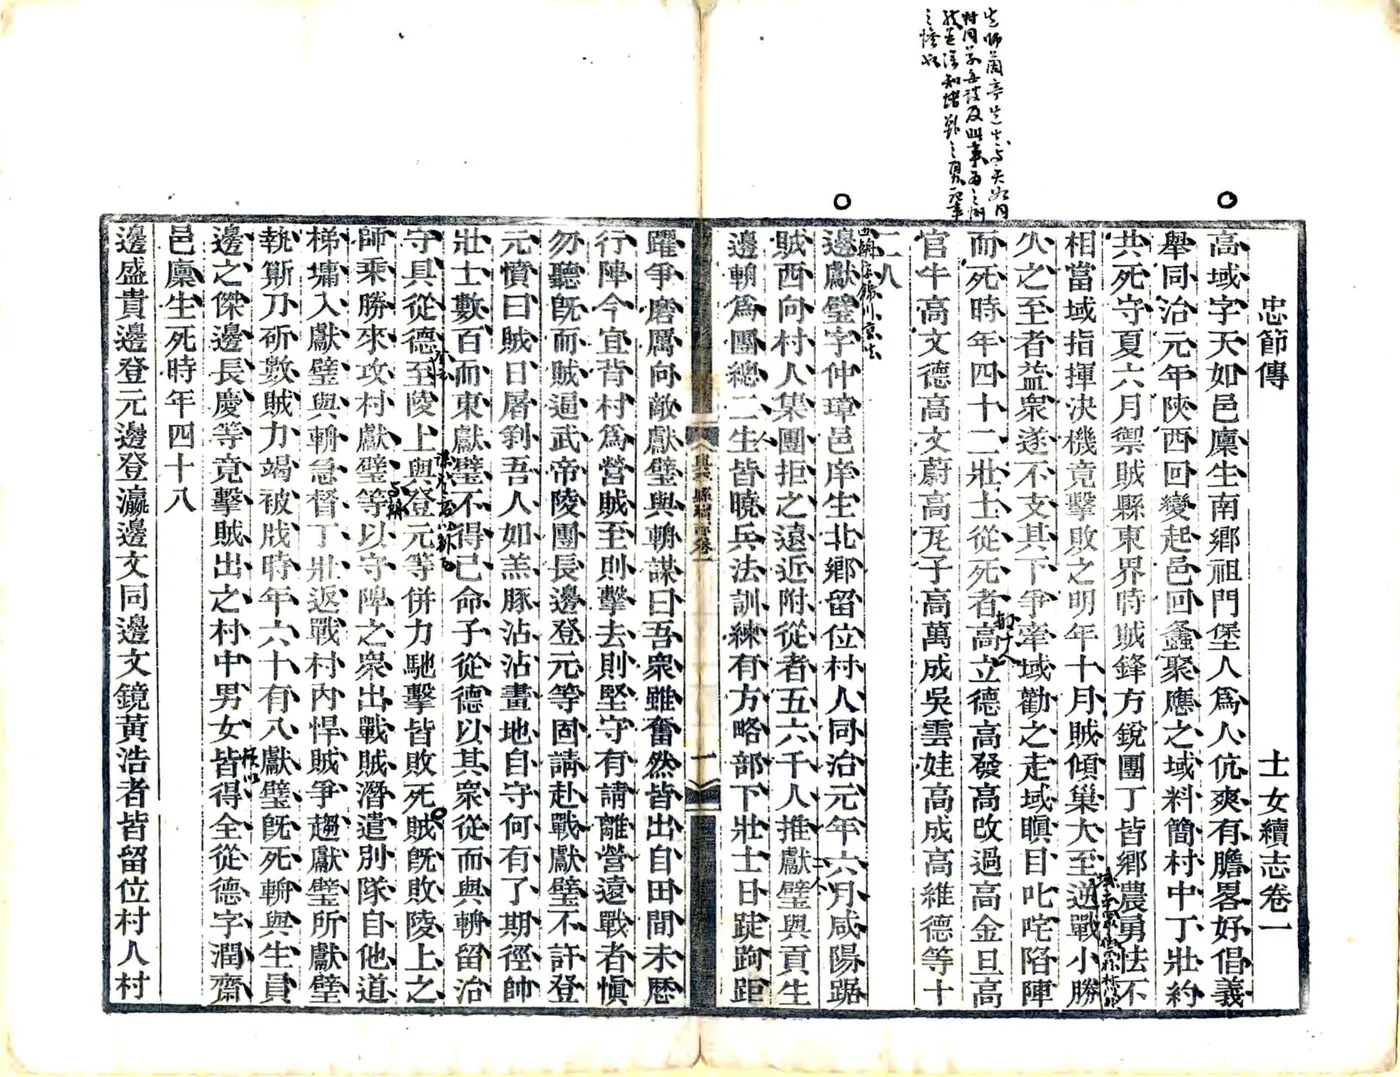 忠節傳　士女續志卷一
高域字天如邑廩生南鄉祖門堡人為人伉爽有膽畧好倡義
舉同治元年陝西回變起邑回蠢聚應之域料簡村中丁壯約
共死守夏六月禦賊縣東界時賊鋒方銳團丁皆鄉農勇怯不
相當域指揮決機竟擊敗之明年十月賊傾巢大至逆戰小勝
久之至者益衆遂不支其下爭牽域勸之走域瞋目叱咤陷陣
而死時年四十二壯士從死者高立德高發高改過高金旦高
官牛高文德高文蔚高尨子高萬成吳雲娃高成高維德等十
二八
邊獻璧字仲瑋邑庠生北鄉留位村人同治元年六月咸陽踞
賊西向村人集團拒之遠近附從者五六千人推獻璧與貢生
邊輈爲團總二生皆曉兵法訓練有方略部下壯士日踀跔距
躍爭磨厲向敵獻璧與輈謀曰吾衆雖奮然皆出自田間未歷
行陣今宜背村爲營賊至則擊去則堅守有請離營遠戰者愼
勿聽旣而賊逼武帝陵團長邊登元等固請赴戰獻璧不許登
元憤曰賊日屠刲吾人如羔豚沾沾畫地自守何有了期徑帥
壯士數百而東獻璧不得已命子從德以其衆從而與輈留治
守具從德至陵上與登元等併力馳擊皆敗死賊旣敗陵上之
師乘勝來攻村獻璧等以守陴之衆出戰賊潛遣別隊自他道
梯墉入獻璧與輈急督丁壯返戰村內悍賊爭趨獻璧所獻璧
執斷刀斫數賊力竭被戕時年六十有八獻璧旣死輈與生員
邊之傑邊長慶等竟擊賊出之村中男女皆得全從德字潤齋
邑廩生死時年四十八
邊盛貴邊登元邊登瀛邊文同邊文鏡黃浩者皆留位村人村